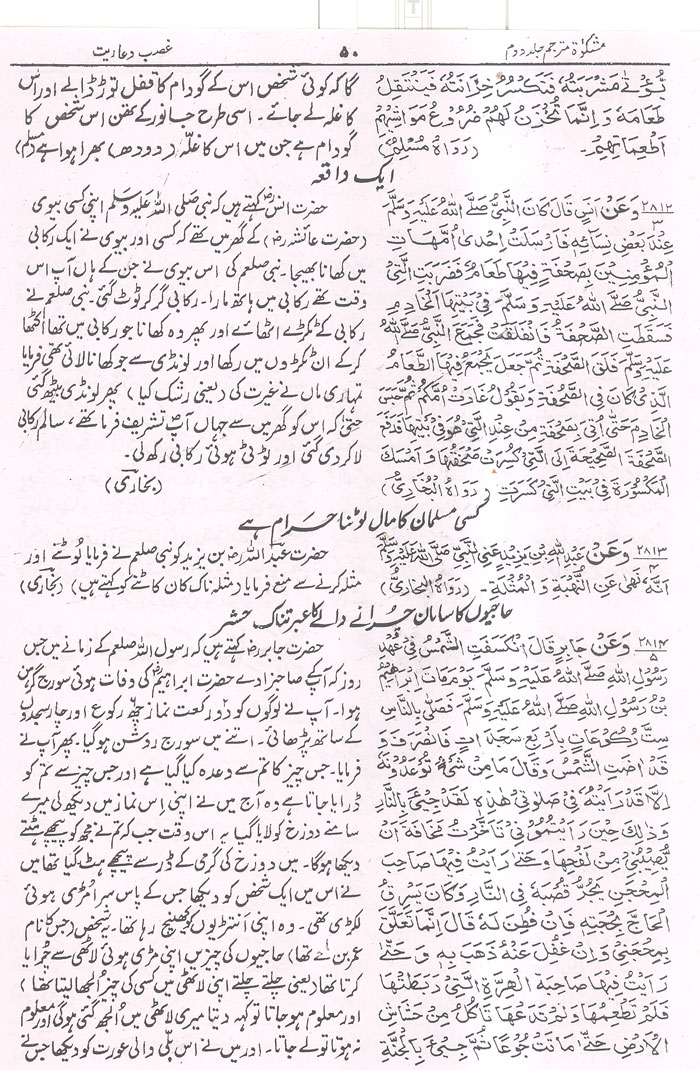 مشکوٰۃ مترجم جلد دوم
۵۰
غصب و عاریت
تُؤْتٰی مَشْرَبَتُهٗ فَتُكْسَرَ خِزَانَتُهٗ فَيُنْتَقَلَ
طَعَامُهٗ وَ اِنَّمَا يَخْزُنُ لَهُمْ ضُرُوْعُ مَوَاشِيْهِمْ
اَطْعِمَاتِهِمْ۔ (رَوَاهُ مُسْلِمٌ)
گا کہ کوئی شخص اس کے گودام کا قفل توڑ ڈالے اور اس
کا غلہ لے جائے۔ اسی طرح جانور کے تھن اس شخص کا
گودام ہے جن میں اس کا غلّہ (دودھ) بھرا ہوا ہے (مسلم)
ایک واقعہ
۲۸۱۲
۳
وَعَنْ اَنَسٍ قَالَ كَانَ النَّبِيُّ صَلَّى اللهُ عَلَيْهِ وَسَلَّمَ
عِنْدَ بَعْضِ نِسَائِهٖ فَاَرْسَلَتْ اِحْدٰى اُمَّهَاتِ
الْمُؤْمِنِيْنَ بِصَحْفَةٍ فِيْهَا طَعَامٌ فَضَرَبَتِ الَّتِيْ
النَّبِيُّ صَلَّى اللهُ عَلَيْهِ وَسَلَّمَ فِيْ بَيْتِهَا يَدَ الْخَادِمِ
فَسَقَطَتِ الصَّحْفَةُ فَانْفَلَقَتْ فَجَمَعَ النَّبِيُّ صَلَّى اللهُ
عَلَيْهِ وَسَلَّمَ فِلَقَ الصَّحْفَةِ ثُمَّ جَعَلَ يَجْمَعُ فِيْهَا الطَّعَامَ
الَّذِيْ كَانَ فِي الصَّحْفَةِ وَيَقُوْلُ غَارَتْ اُمُّكُمْ ثُمَّ حَبَسَ
الْخَادِمَ حَتّٰى اُتِيَ بِصَحْفَةٍ مِنْ عِنْدِ الَّتِيْ هُوَ فِيْ بَيْتِهَا فَدَفَعَ
الصَّحْفَةَ الصَّحِيْحَةَ اِلَى الَّتِيْ كُسِرَتْ صَحْفَتُهَا وَاَمْسَكَ
الْمَكْسُوْرَةَ فِيْ بَيْتِ الَّتِيْ كَسَرَتْ (رَوَاهُ الْبُخَارِيُّ)
حضرت انسؓ کہتے ہیں کہ نبی صلی اللہ علیہ وسلم اپنی کسی بیوی
(حضرت عائشہؓ) کے گھر میں تھے کہ کسی اور بیوی نے ایک رکابی
میں کھانا بھیجا۔ نبی صلعم کی اس بیوی نے جن کے ہاں آپ اس
وقت تھے رکابی میں ہاتھ مارا۔ رکابی گر کر ٹوٹ گئی۔ نبی صلعم نے
رکابی کے ٹکڑے اٹھائے اور پھر وہ کھانا جو رکابی میں تھا اکٹھا
کر کے ان ٹکڑوں میں رکھا اور لونڈی سے جو کھانا لائی تھی فرمایا
تمہاری ماں نے غیرت کی (یعنی رشک کیا) پھر لونڈی بیٹھ گئی
حتیٰ کہ اس کو گھر میں سے جہاں آپؐ تشریف فرما تھے، سالم رکابی
لا کر دی گئی اور ٹوٹی ہوئی رکابی رکھ لی۔
(بخاری)
کسی مسلمان کا مال لوٹنا حرام ہے
۲۸۱۳
۴
وَعَنْ عَبْدِ اللهِ بْنِ يَزِيْدَ عَنِ النَّبِيِّ صَلَّى اللهُ عَلَيْهِ وَسَلَّمَ
اَنَّهٗ نَهٰى عَنِ النُّهْبَةِ وَ الْمُثْلَةِ۔ (رَوَاهُ الْبُخَارِيُّ)
حضرت عبد اللہؓ بن یزید کو نبی صلعم نے فرمایا لوٹنے اور
مثلہ کرنے سے منع فرمایا (مثلہ ناک کان کاٹنے کو کہتے ہیں) (بخاری)
حاجیوں کا سامان چرانے والے کا عبرتناک حشر
۲۸۱۴
۵
وَعَنْ جَابِرٍ قَالَ انْكَسَفَتِ الشَّمْسُ فِيْ عَهْدِ
رَسُوْلِ اللهِ صَلَّى اللهُ عَلَيْهِ وَسَلَّمَ يَوْمَ مَاتَ اِبْرَاهِيْمُ
بْنُ رَسُوْلِ اللهِ صَلَّى اللهُ عَلَيْهِ وَسَلَّمَ فَصَلّٰى بِالنَّاسِ
سِتَّ رَكَعَاتٍ بِاَرْبَعِ سَجَدَاتٍ فَانْصَرَفَ وَ
قَدْ اٰضَتِ الشَّمْسُ وَقَالَ مَا مِنْ شَيْءٍ تُوْعَدُوْنَهٗ
اِلَّا قَدْ رَاَيْتُهٗ فِيْ صَلٰوتِيْ هٰذِهٖ لَقَدْ جِيْءَ بِالنَّارِ
وَذٰلِكَ حِيْنَ رَاَيْتُمُوْنِيْ تَاَخَّرْتُ مَخَافَةَ اَنْ
يُّصِيْبَنِيْ مِنْ لَفْحِهَا وَحَتّٰى رَاَيْتُ فِيْهَا صَاحِبَ
الْمِحْجَنِ يَجُرُّ قُصْبَهٗ فِي النَّارِ وَكَانَ يَسْرِقُ
الْحَاجَّ بِمِحْجَنِهٖ فَاِنْ فُطِنَ لَهٗ قَالَ اِنَّمَا تَعَلَّقَ
بِمِحْجَنِيْ وَاِنْ غُفِلَ عَنْهُ ذَهَبَ بِهٖ وَحَتّٰى
رَاَيْتُ فِيْهَا صَاحِبَةَ الْهِرَّةِ الَّتِيْ رَبَطَتْهَا
فَلَمْ تُطْعِمْهَا وَلَمْ تَدَعْهَا تَاْكُلُ مِنْ خَشَاشِ
الْاَرْضِ حَتّٰى مَاتَتْ جُوْعًا ثُمَّ جِيْءَ بِالْجَنَّةِ
حضرت جابرؓ کہتے ہیں کہ رسول اللہ صلعم کے زمانے میں جس
روز کہ آپ کے صاحبزادے حضرت ابراہیمؓ کی وفات ہوئی سورج گرہن
ہوا۔ آپ نے لوگوں کو دو رکعت نماز چھ رکوع اور چار سجدوں
کے ساتھ پڑھائی۔ اتنے میں سورج روشن ہو گیا۔ پھر آپ نے
فرمایا۔ جس چیز کا تم سے وعدہ کیا گیا ہے اور جس چیز سے تم کو
ڈرایا جاتا ہے وہ آج میں نے اپنی اس نماز میں دیکھ لی میرے
سامنے دوزخ کو لایا گیا یہ اس وقت جب کہ تم نے مجھ کو پیچھے ہٹتے
دیکھا ہوگا۔ میں دوزخ کی گرمی کے ڈر سے پیچھے ہٹ گیا تھا میں
نے اس میں ایک شخص کو دیکھا جس کے پاس سرا مڑی ہوئی
لکڑی تھی۔ وہ اپنی آنتڑیوں کو کھینچ رہا تھا۔ یہ شخص (جس کا نام
عمر بن تھا) حاجیوں کی چیزیں اپنی مڑی ہوئی لاٹھی سے چرایا
کرتا تھا (یعنی چلتے چلتے اپنی لاٹھی میں کسی کی چیز الجھا لیتا تھا)
اور معلوم ہو جاتا تو کہہ دیتا میری لاٹھی میں الجھ گئی ہوگی اور معلوم
نہ ہوتا تو لے جاتا۔ اور میں نے اس بلّی والی عورت کو دیکھا جس نے